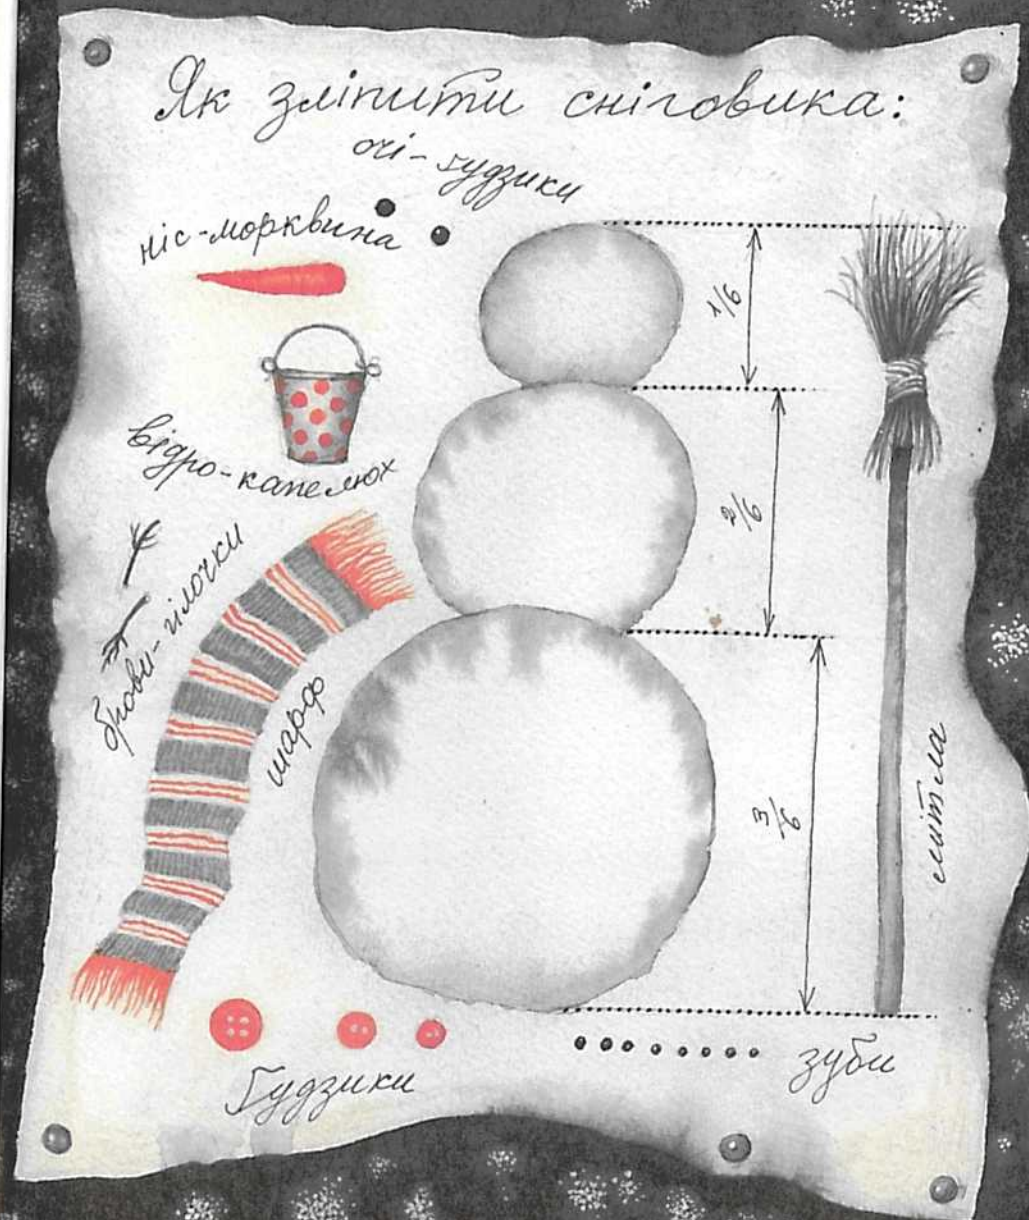 Як зліпити сніговика:
очі-ґудзики
ніс-морквина
1/6
відро-капелюх
2/6
брови-гілочки
шарф
3/6
мітла
Ґудзики
зуби